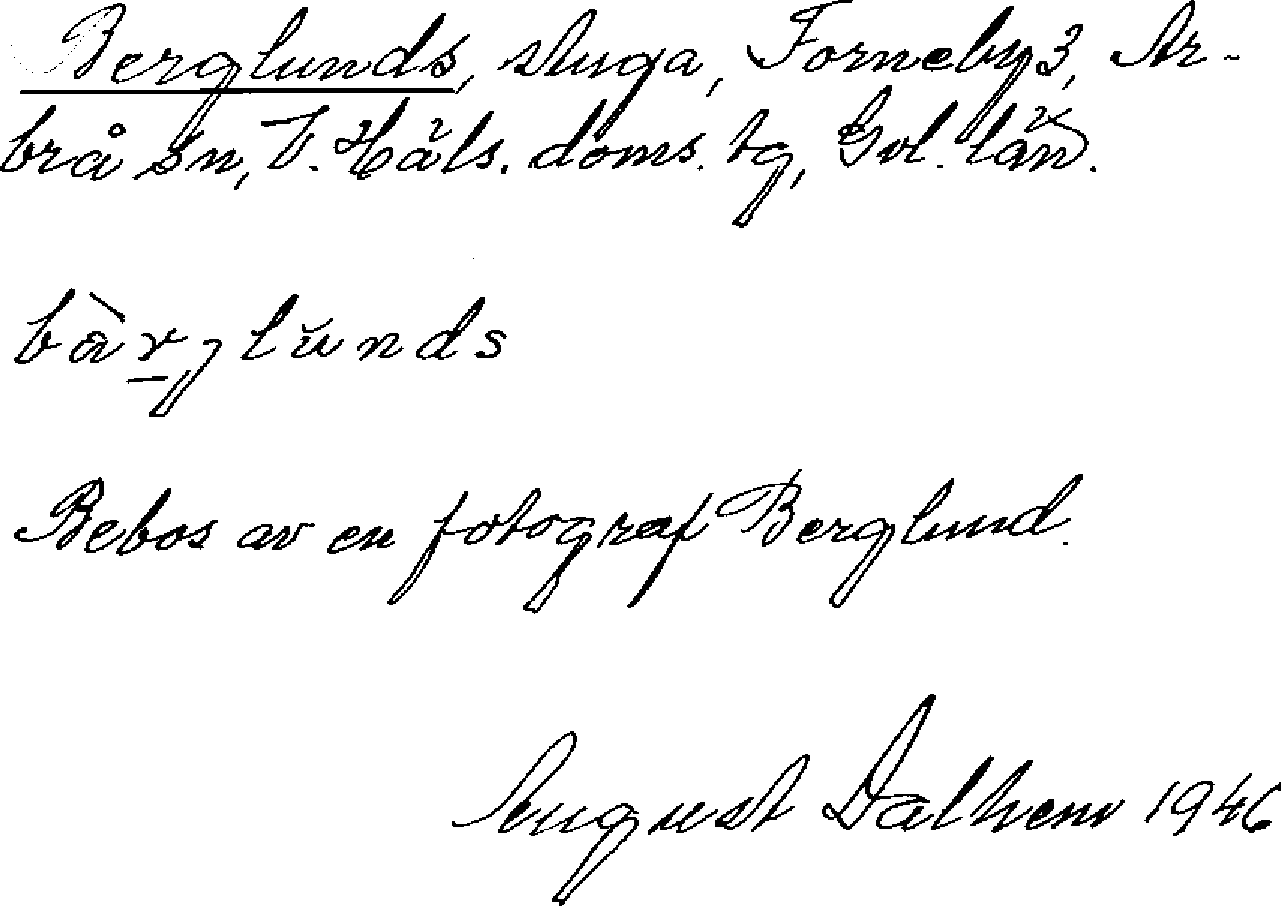 Berglunds, stuga, Forneby 3, Ar-
brå sn, V. Häls. doms. tg, Gvl. län.
bàrglunds
Bebos av en fotograf Berglund.
August Dalhem 1946